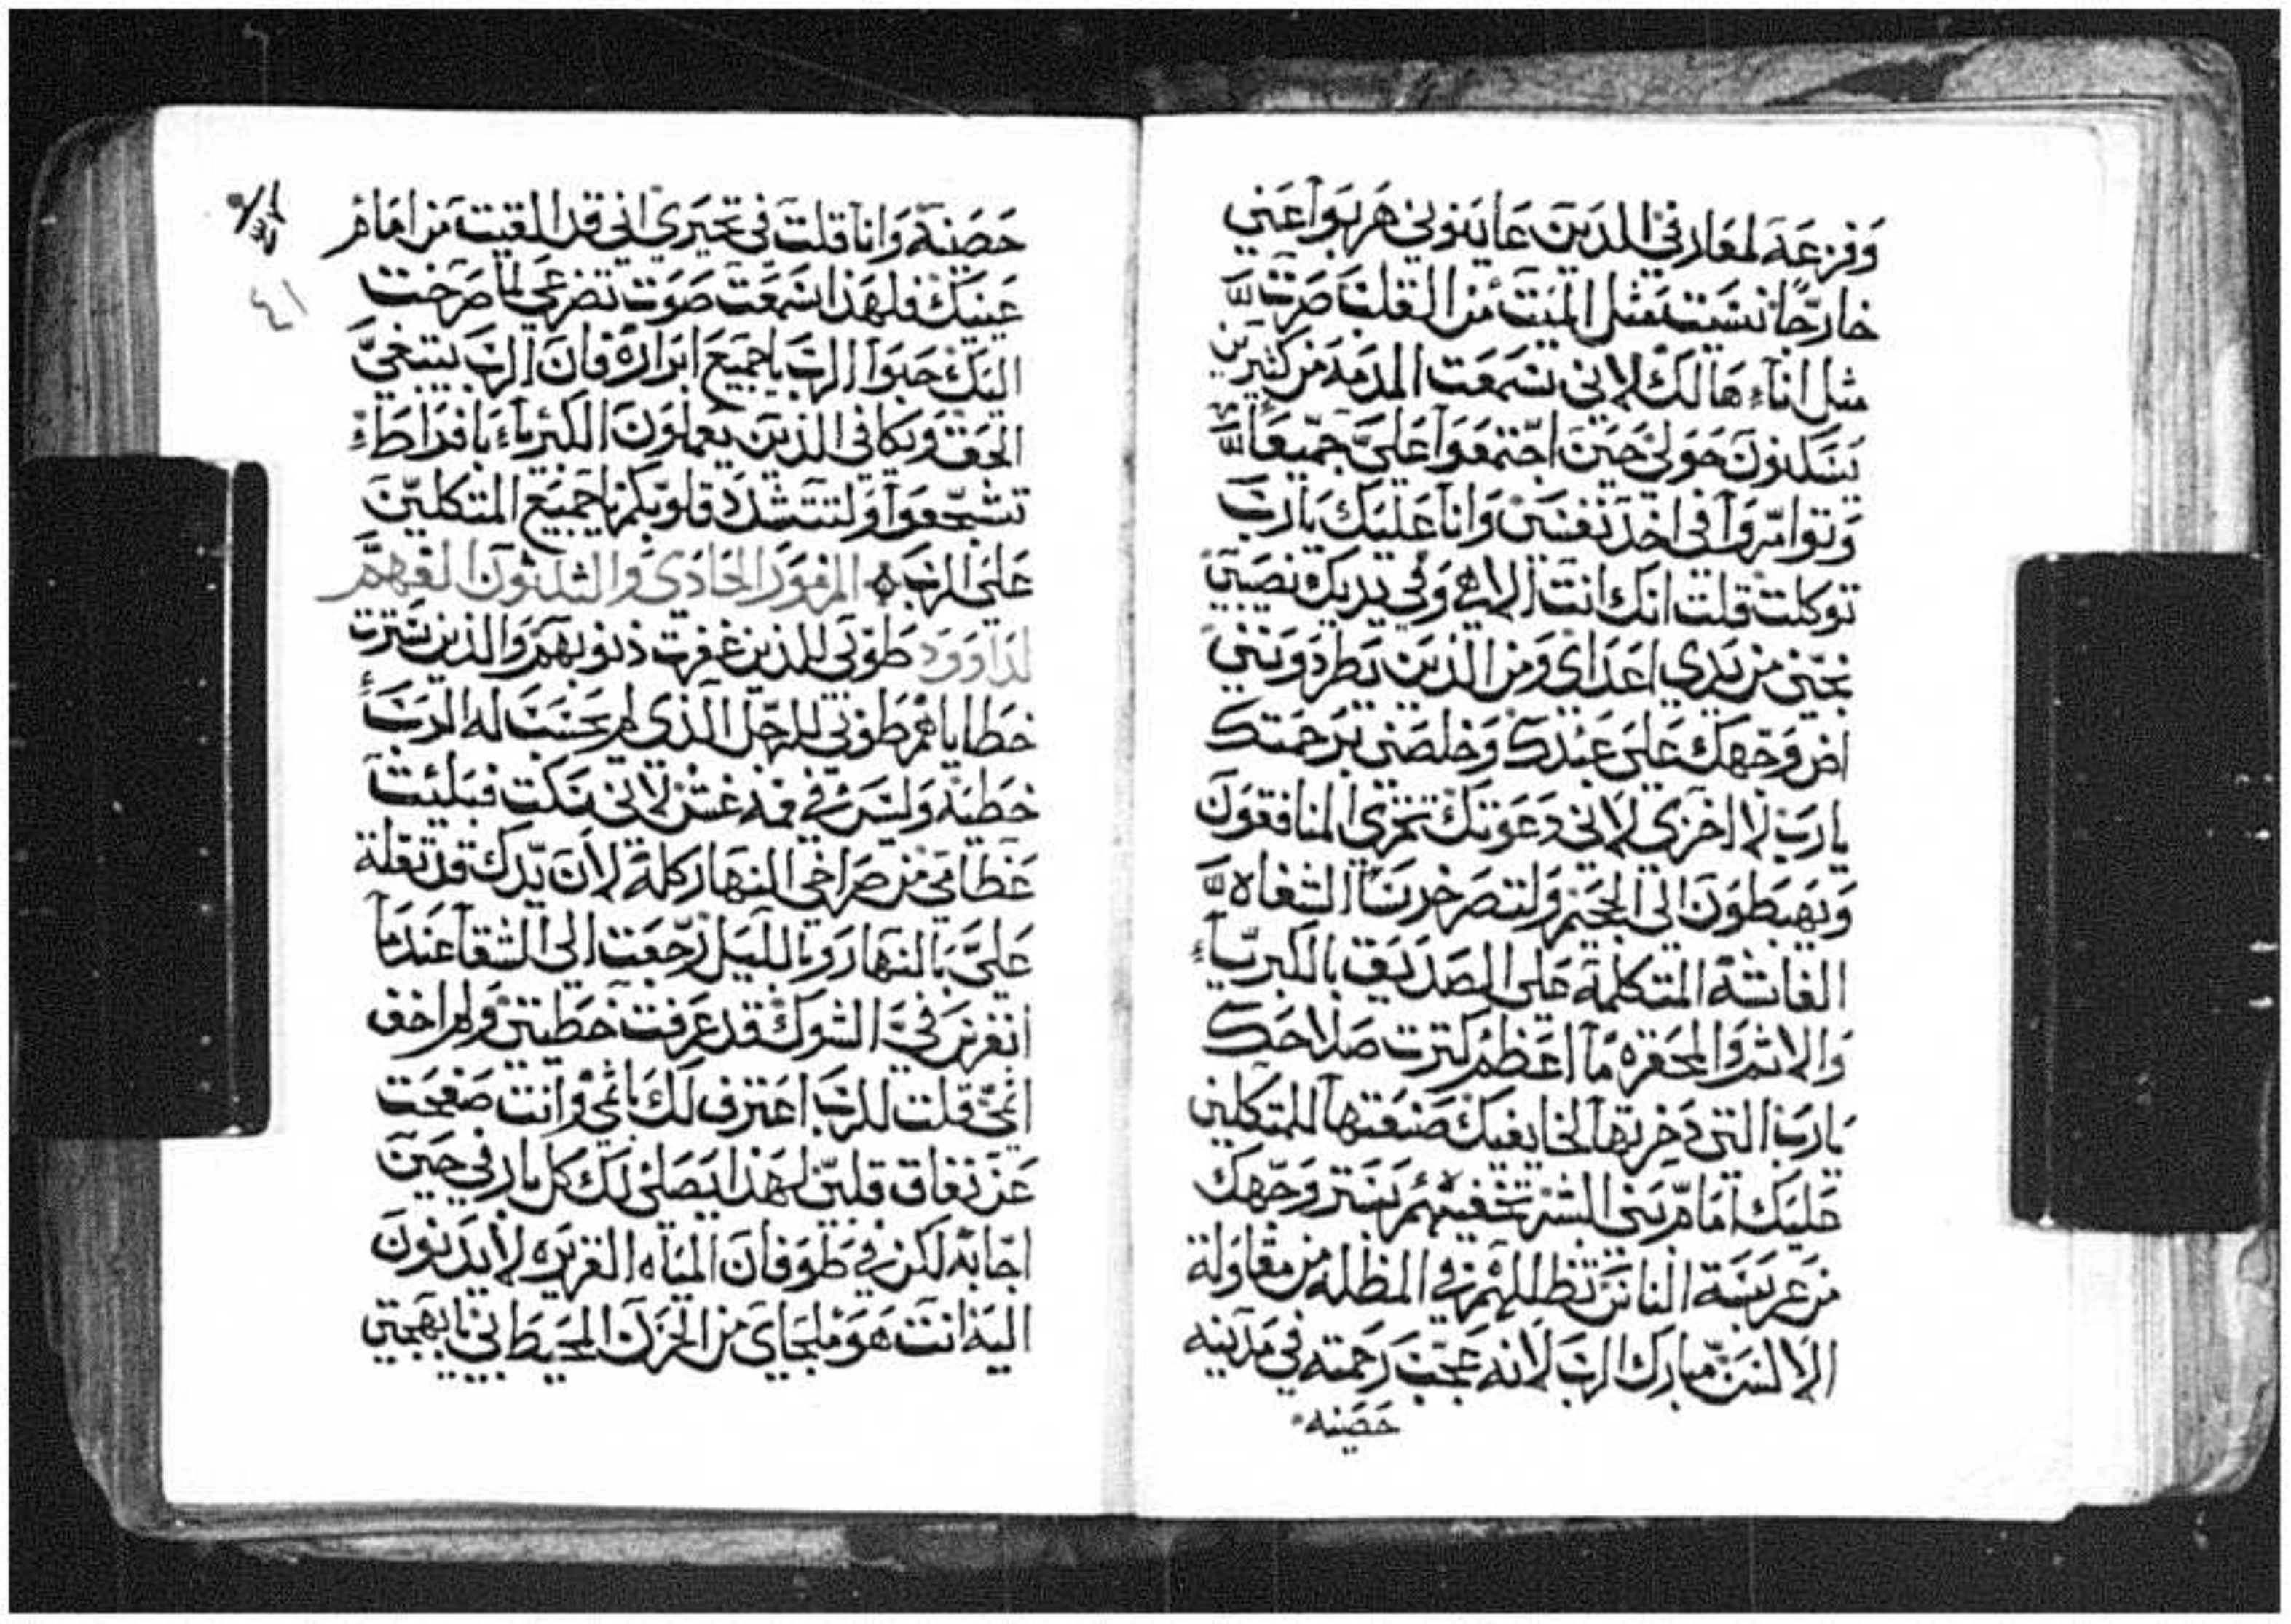 وَفزعَة لمعارفي الدين عاينوني هربوا عني
خارجًا نسيت مثل الميت من القلب صرت
مثل اناء هالك لاني سمعت المدمة من كثيرين
يسكنون حولي حين اجتمعوا عليَّ جميعًا
وتوامروا في اخذ نفسي وانا عليك يارب
توكلت قلت انك انت الاهي وفي يديك نصيبي
نجني من يدي اعداي ومن الذين يطردونني
اضي وجهك على عبدك وخلصني برحمتك
يارب لا اخزي لاني دعوتك تخزي المنافقون
ويهبطون الى الجحيم ولتصر خرسًا الشفاه
الغاشة المتكلمة على الصديق بالكبرياء
والاثم والمحقره ما اعظم كثرت صلاحك
يارب التي دخرتها لخايفيك صنعتها للمتكلين
عليك امام بني البشر تخفيهم بستر وجهك
من عربسة الناس تظللهم في المظله من مقاولة
الالسن مبارك الرب لانه عجب رحمته في مدينه
حصينه
حصينة وانا قلت في تحيري اني قد القيت من امام
عينيك فلهذا سمعت صوت تضرعي لما صرخت
اليك حبوا الرب ياجميع ابراره فان الرب يبتغي
الحق ويكافي الذين يعملون الكبرياء بافراط
تشجعوا ولتتشدد قلوبكم ياجميع المتكلين
على الرب المزمور الحادي والثلثون الفهم
لداوود طوبى للذين غفرت ذنوبهم والذين سترت
خطاياهم طوبى للرجل الذي لم يحسب له الرب
خطية وليس في فمه غش لاني سكت فبليت
عظامي من صراخي النهار كله لان يدك قد ثقلة
عليَّ بالنهار وبالليل رجعت الى الشقا عندما
انغرس فيَّ الشوك قد عرفت خطيتي ولم اخف
اثمي قلت للرب اعترف لك باثمي وانت صفحت
عن نفاق قلبي لهذا يصلي لك كل بار في حين
اجابة لكن في طوفان المياه الغزيره لا يدنون
اليه انت هو ملجاي من الحزن المحيط بي يابهجتي
٤١